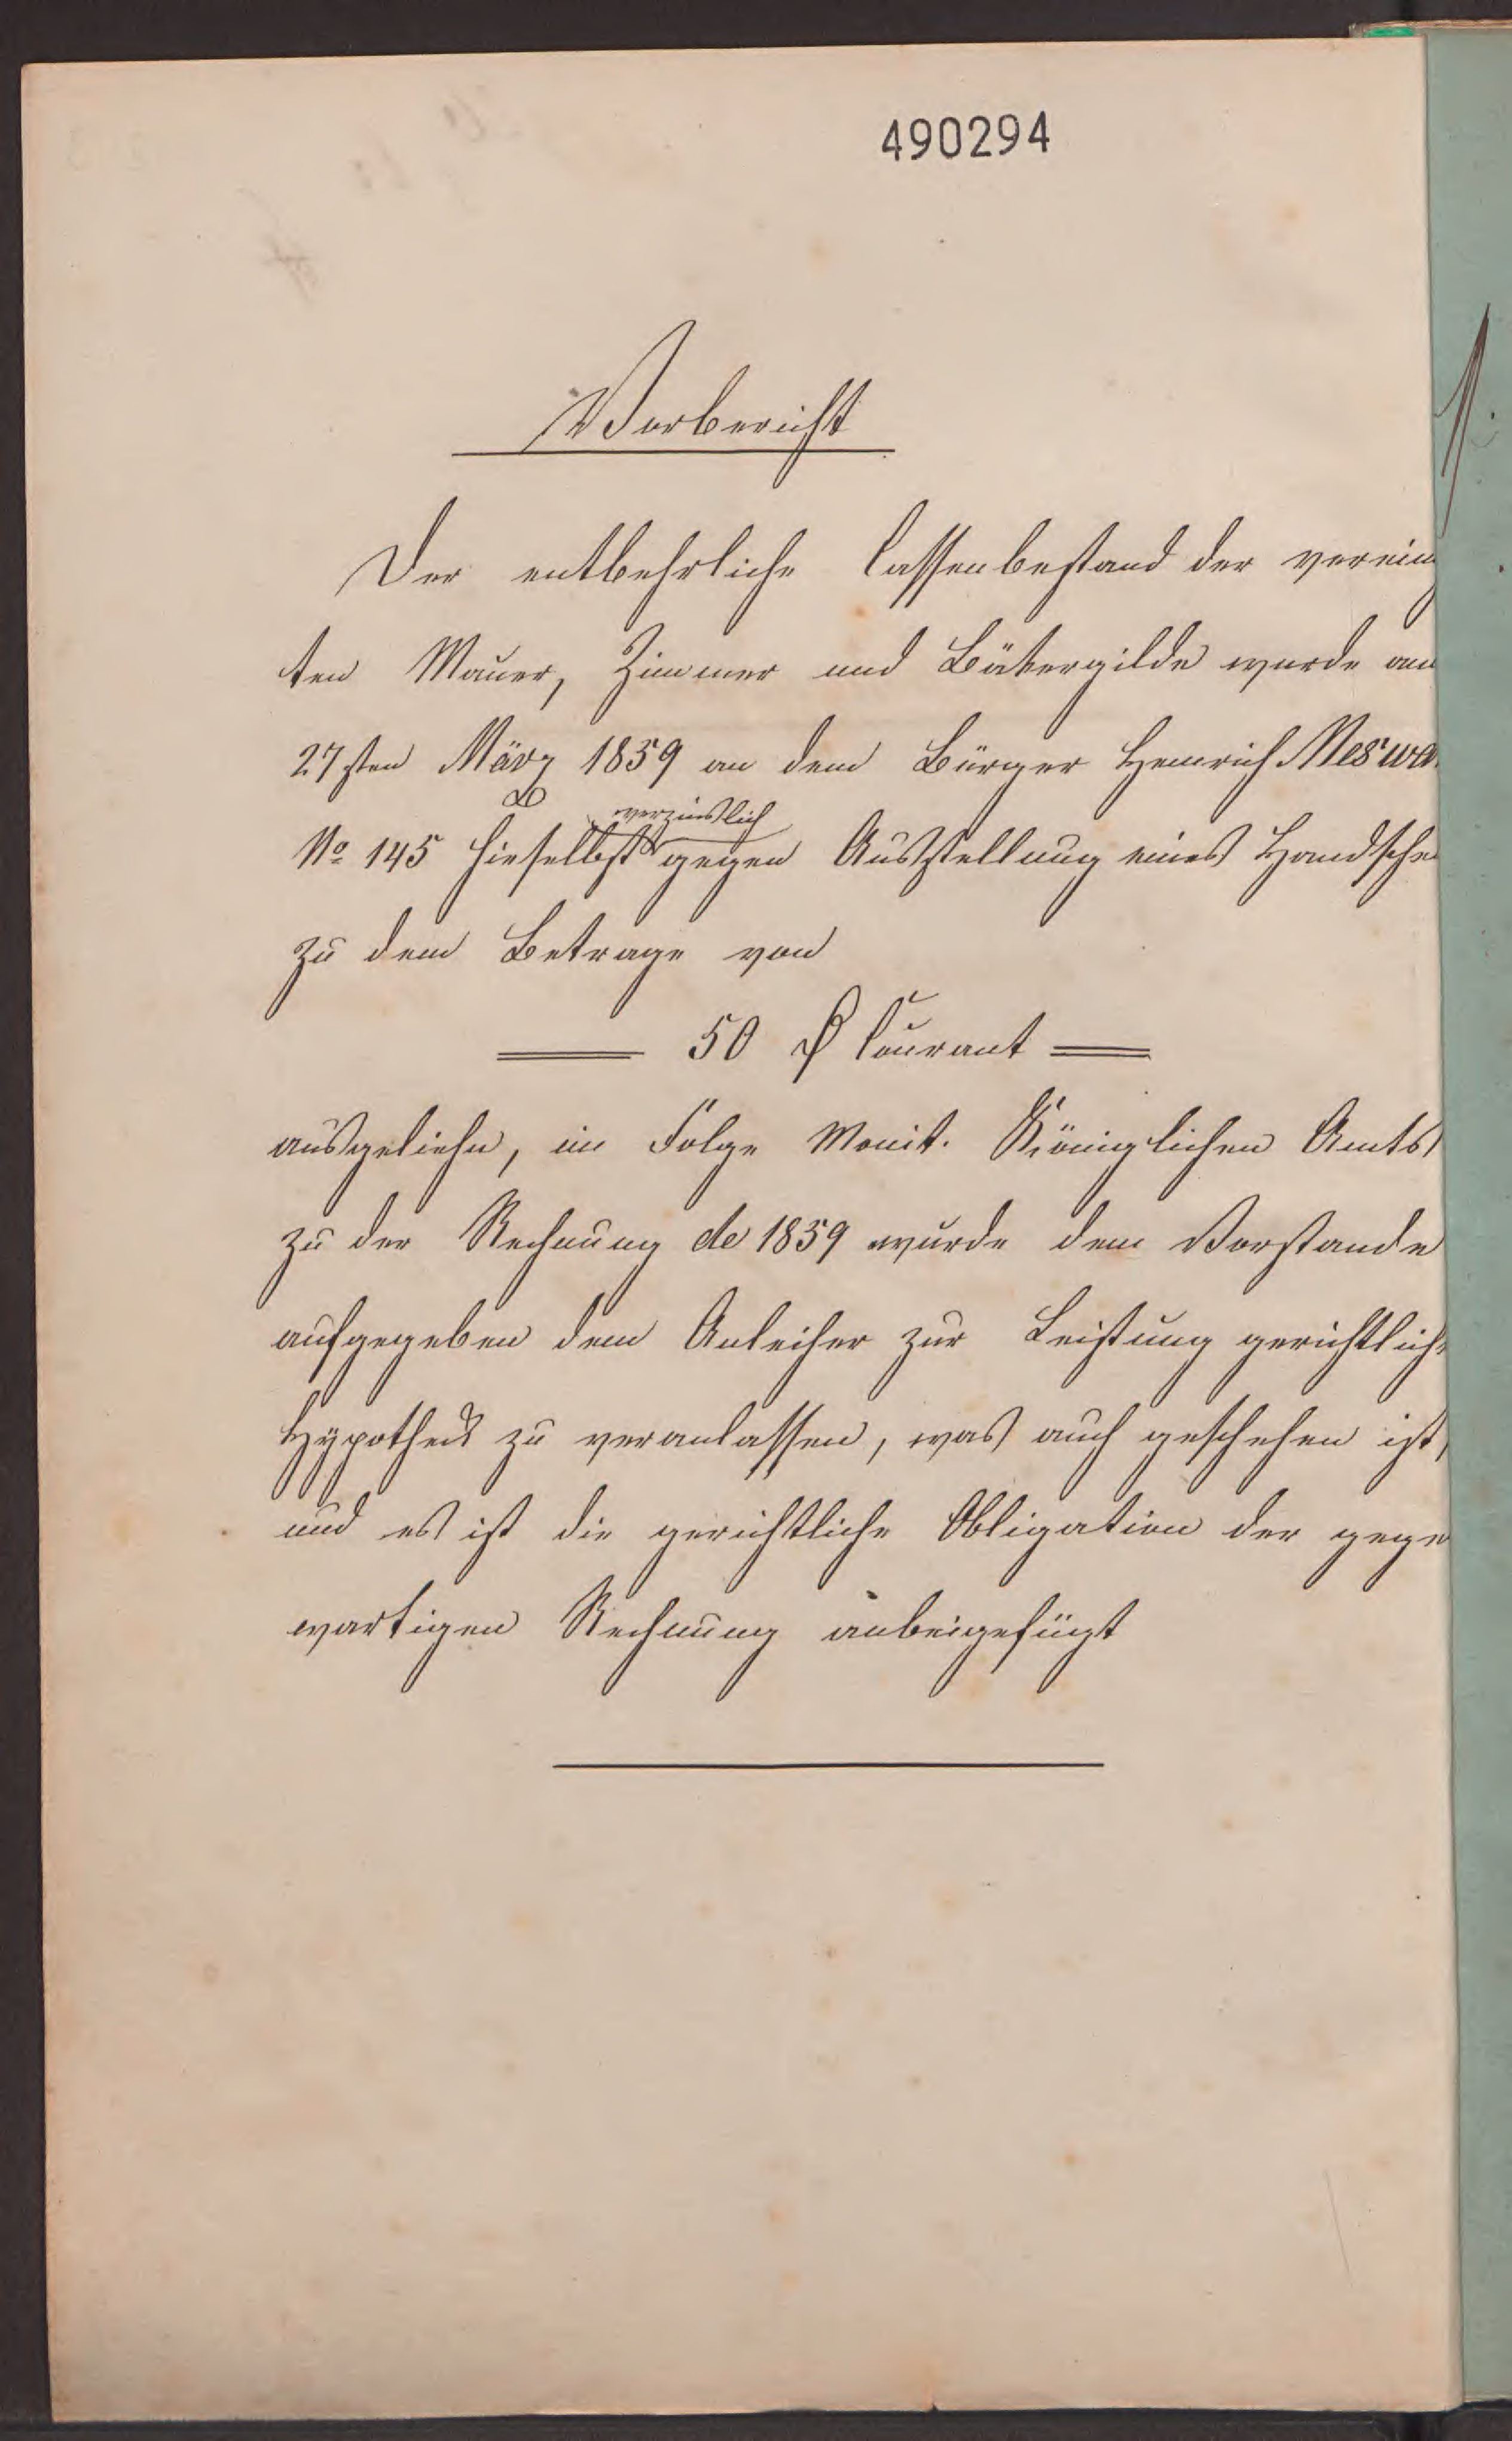 490294
Vorbericht
Der entbehrliche Cassenbestand der verein
ten Mauer, Zimmer und Bäkergilde wurde am
27sten März 1859 an dem Bürger Heinrich Meswa
verzinslich
No 145 hieselbst gegen Ausstellung eines Handsche
zu dem Betrage von
50 ₰ Courant
ausgeliehn, in Folge Monit. Königlichen Amts
zu der Rechnung de 1859 wurde dem Vorstande
aufgegeben dem Anleiher zur Leistung gerichtliche
Hypothek zu veranlassen, was auch geschehen ist,
und es ist die gerichtliche Obligation der gege
wartigen Rechnung anbeigefügt